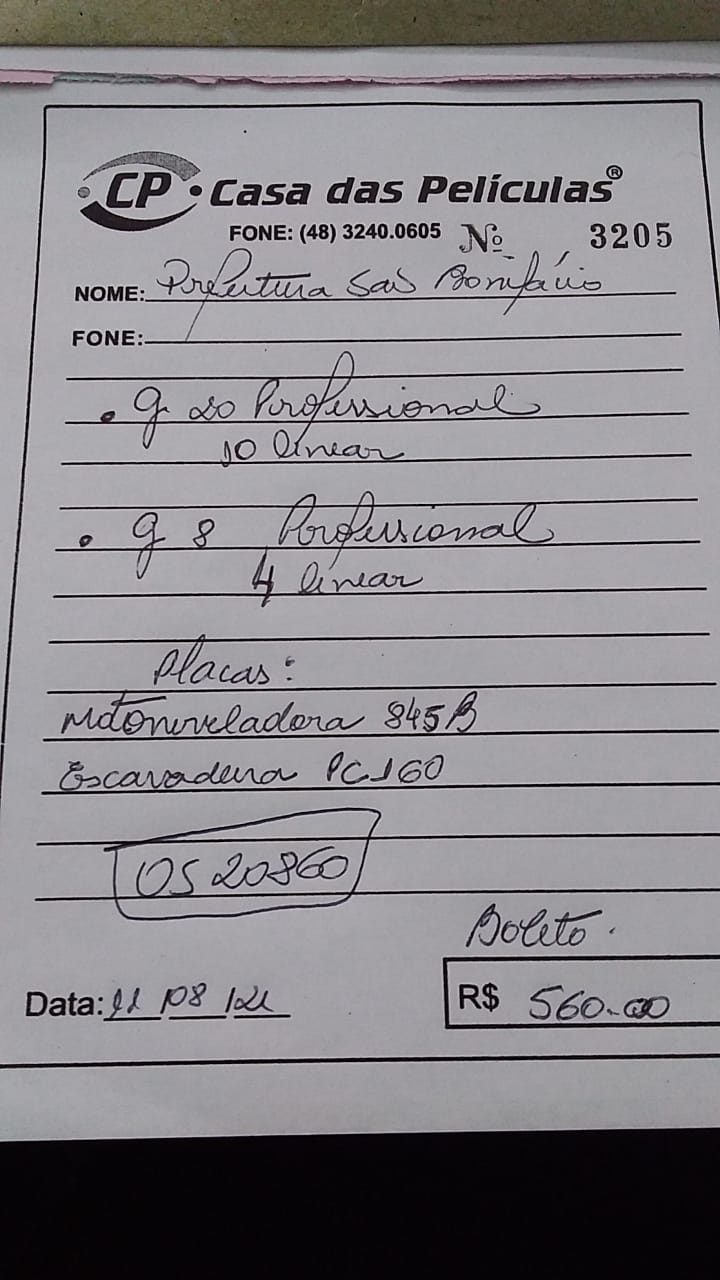 CP • Casa das Películas®
FONE: (48) 3240.0605 Nº 3205
NOME: Prefeitura São Bonifácio
FONE:
• G 20 Profissional
10 linear
• G 8 Profissional
4 linear
Placas:
Motoniveladora 845B
Escavadeira PC160
OS 20860
Boleto.
Data: 11 / 08 / 21 R$ 560.00